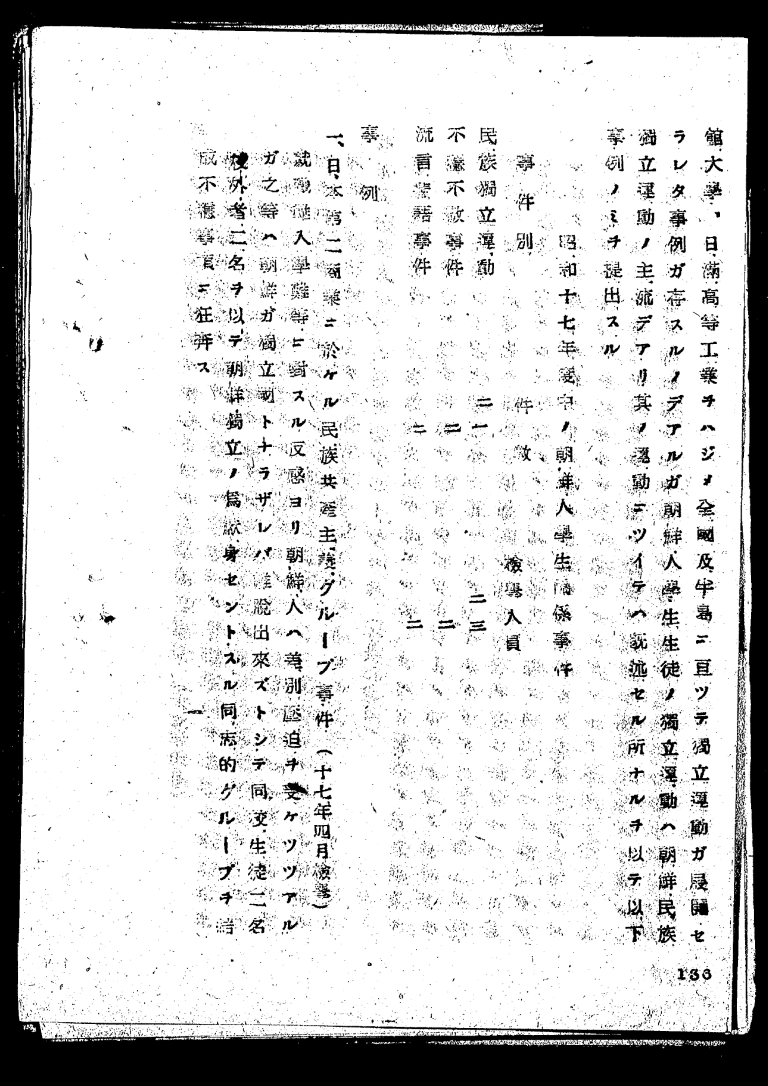 館大學、日滿高等工業ヲハジメ全國及半島ニ亘ツテ獨立運動ガ展開セ
ラレタ事例ガ存スルノデアルガ朝鮮人學生生徒ノ獨立運動ハ朝鮮民族
獨立運動ノ主流デアリ其ノ運動ニツイテハ既述セル所ナルヲ以テ以下
事例ノミヲ提出スル
昭和十七年度中ノ朝鮮人學生關係事件
事件別 件數 檢擧人員
民族獨立運動 二一 二三
不穩不敬事件 二 二
流言蜚語事件 二 二
事例
一、日本第二商業ニ於ケル民族共產主義グループ事件(十七年四月檢擧)
就職難入學難等ニ對スル反感ヨリ朝鮮人ハ差別壓迫ヲ受ケツツアル
ガ之等ハ朝鮮ガ獨立國トナラザレバ 脫出來ズトシテ同校生徒二名
校外者二名ヲ以テ朝鮮獨立ノ爲獻身セントスル同志的グループヲ結
成不穩事項ニ狂奔ス
136